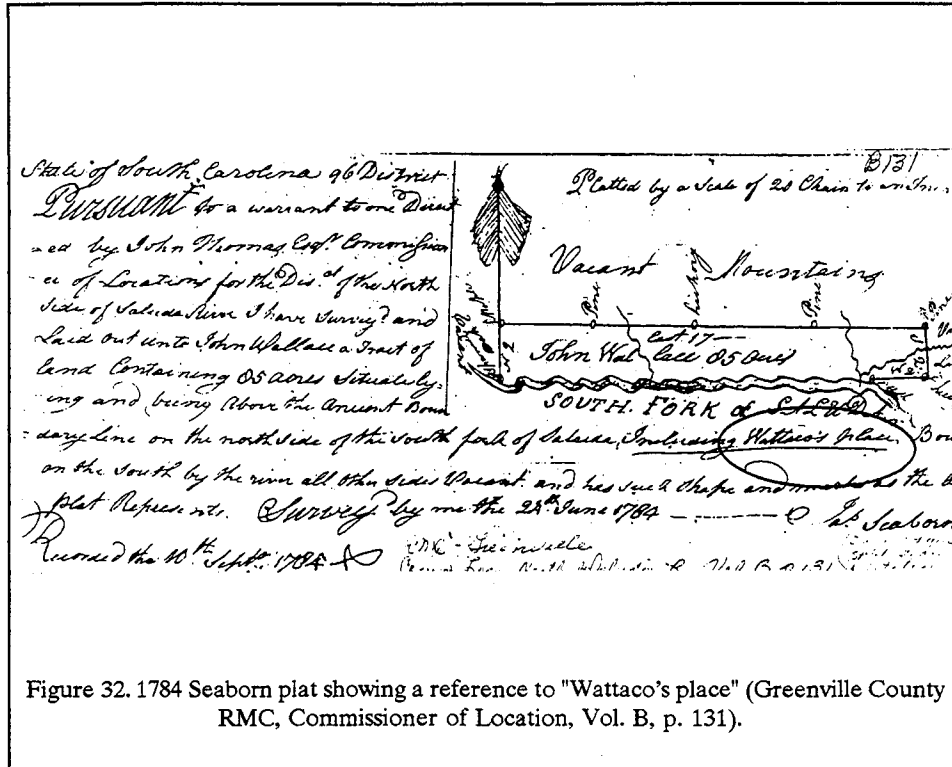 State of South Carolina 96 District
Pursuant to a warrant to me Direct
-ed by John Thomas Esqr. Commission
er of Locations for the Dist. of the North
Side of Saluda River I have Survey'd and
Laid out unto John Wallace a Tract of
land Containing 85 acres Situate ly-
ing and being Above the Ancient Boun
dary Line on the north side of the South fork of Saluda Including Wattaco's place Bou
on the South by the river all other sides Vacant and has such shape and marks as the
plat Represents. Survey'd by me the 28th June 1784 Jas. Seaborn
Recorded the 10th Septr. 1784
B131
Platted by a Scale of 20 Chain to an In
Vacant Mountains
Pine
Pine
East 17
John Wallace 85 acres
SOUTH. FORK of SALUDA
RMC Greenville
Figure 32. 1784 Seaborn plat showing a reference to "Wattaco's place" (Greenville County
RMC, Commissioner of Location, Vol. B, p. 131).